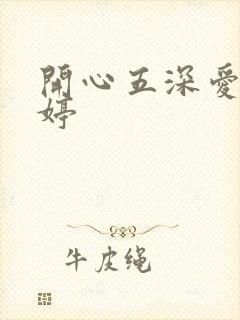 開心五深愛
婷
牛皮绳